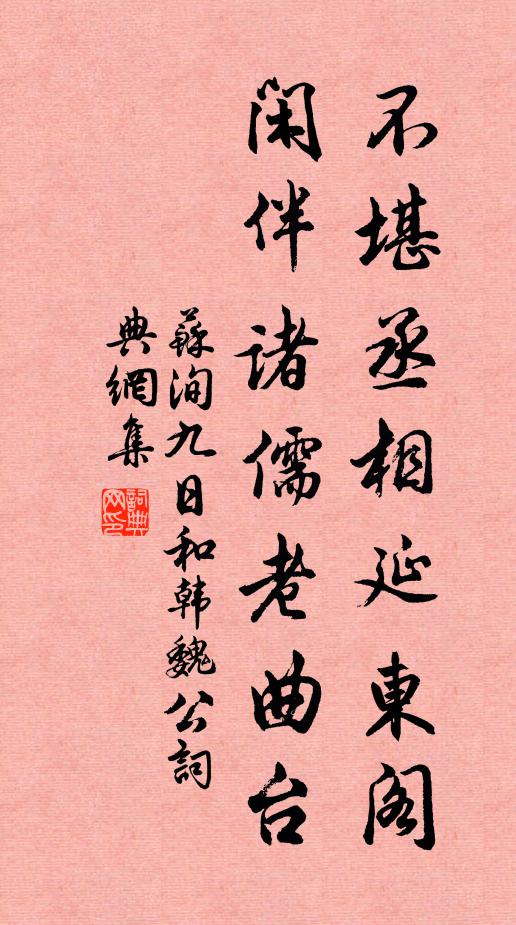 不堪丞相延東阁
闲伴诸儒老曲台
蘇洵九日和韩魏公詞
典網集
詞典网印